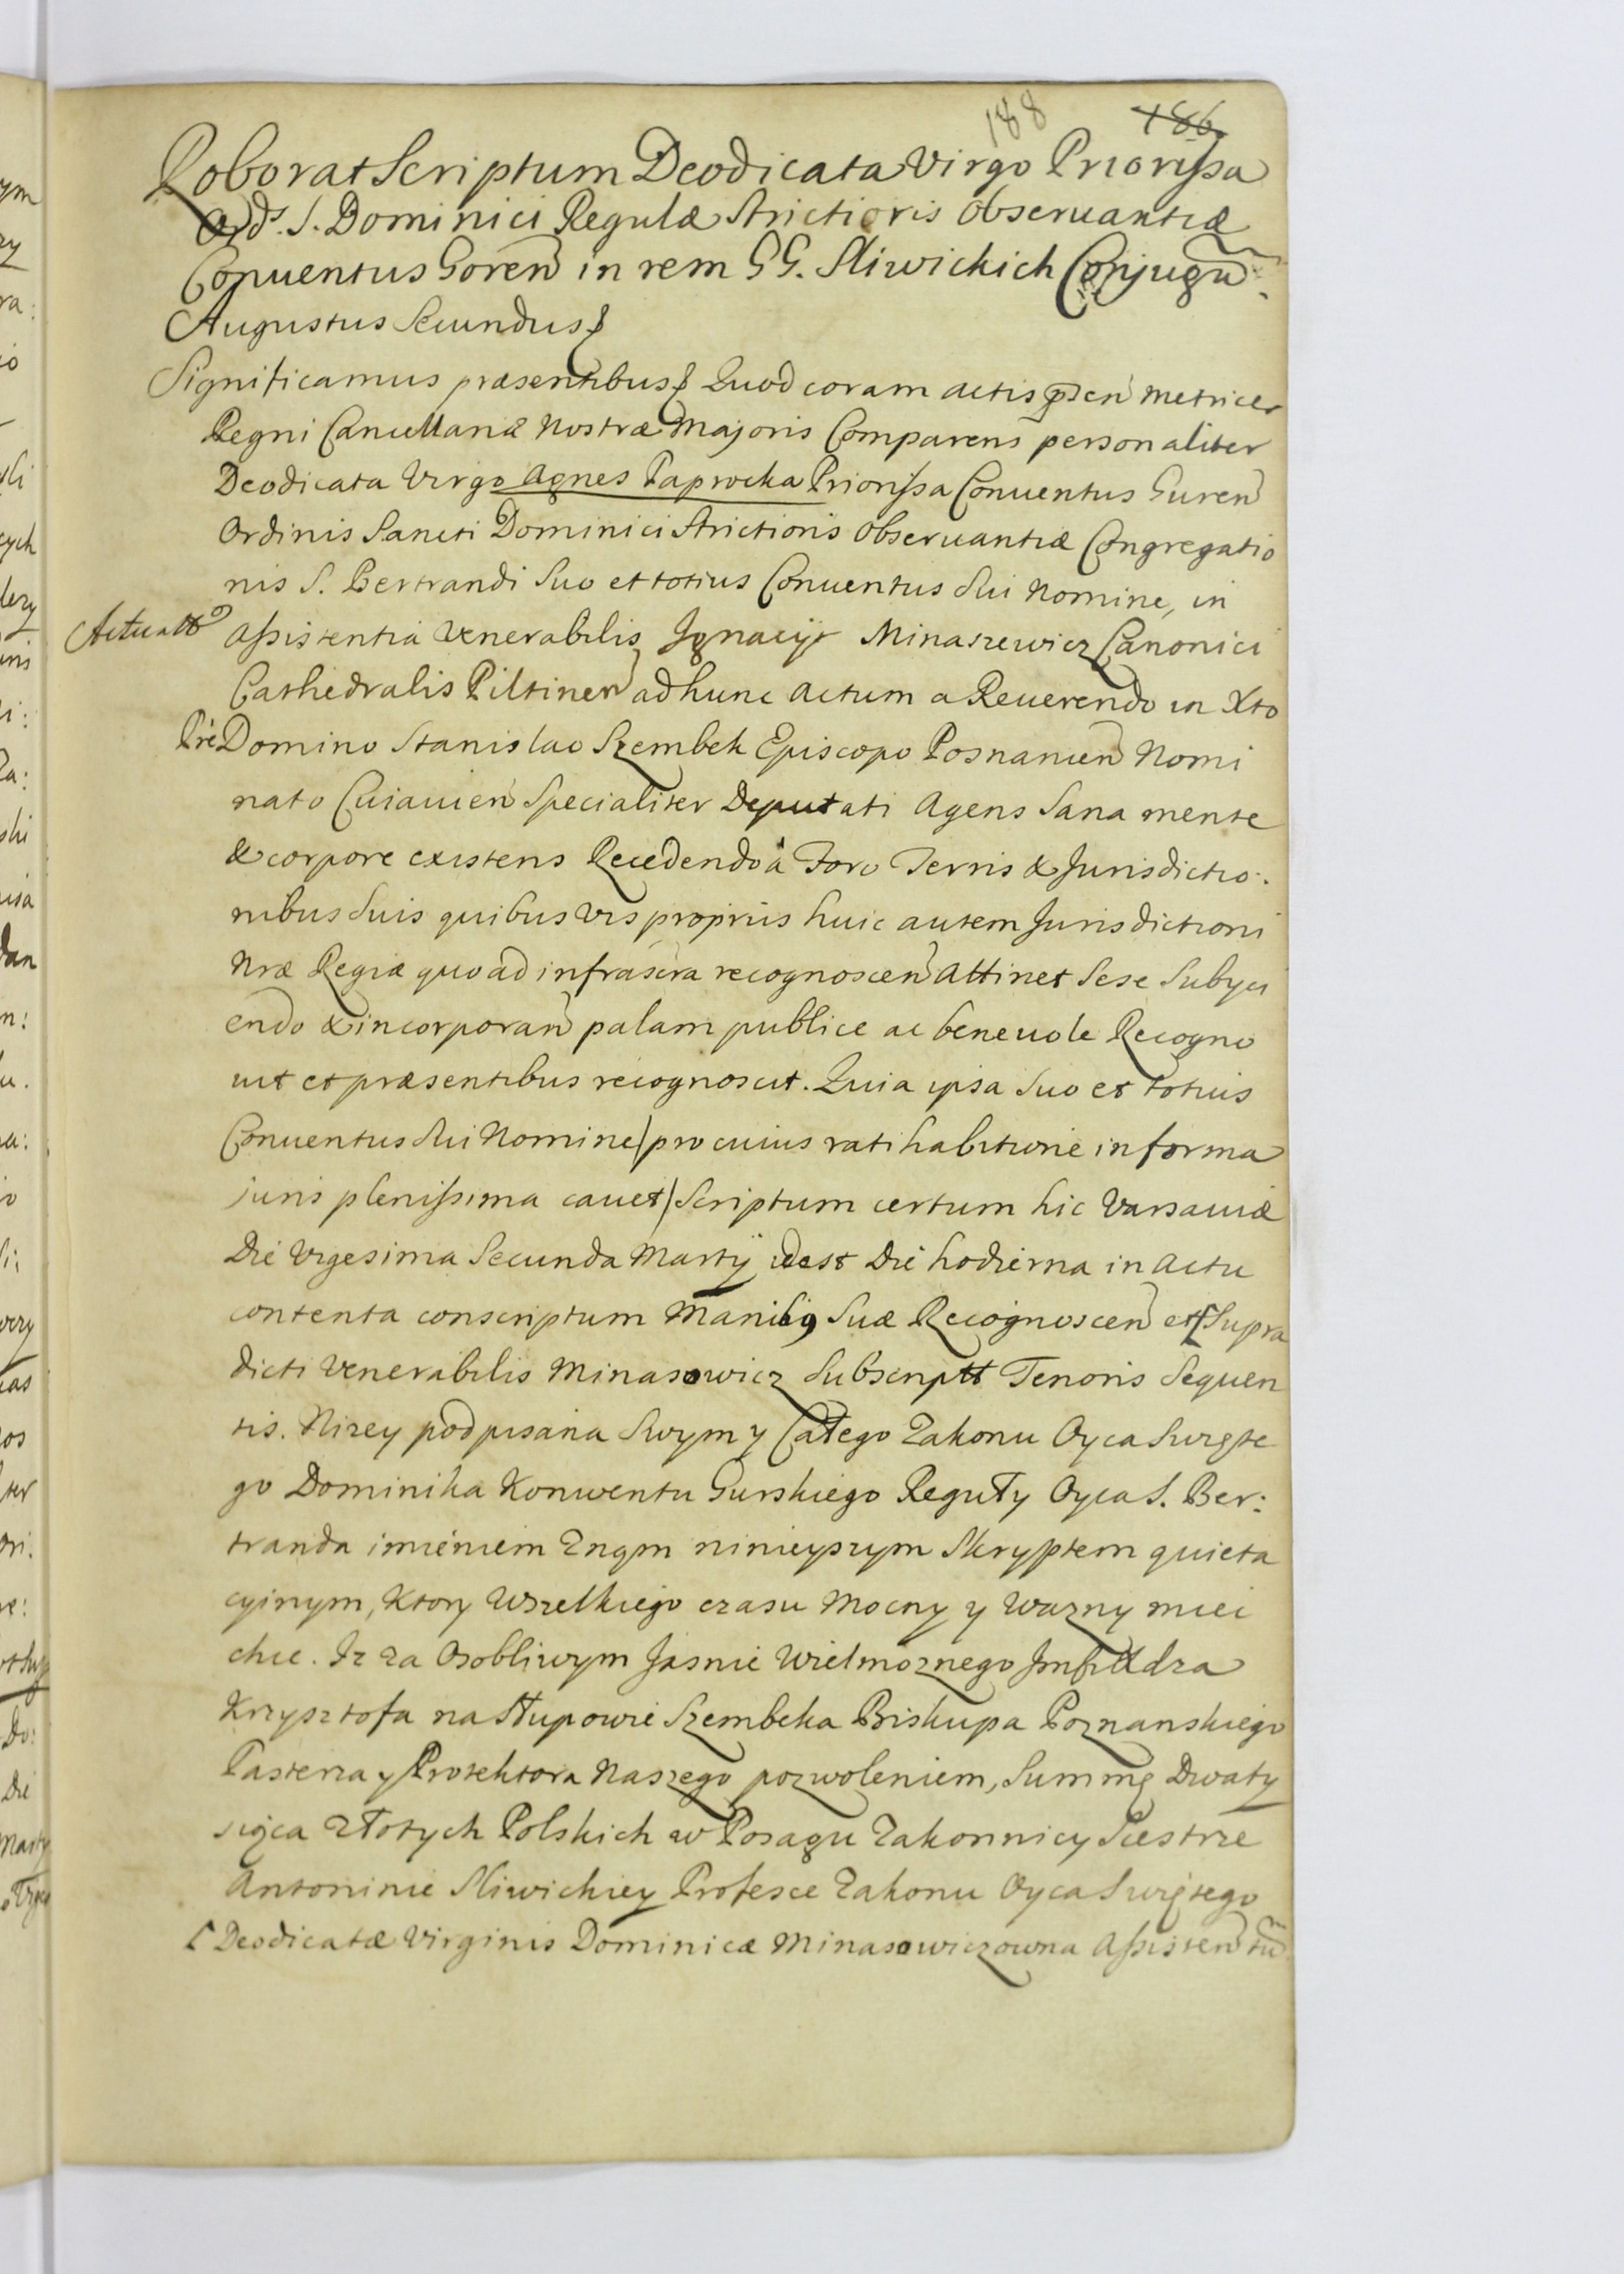 188 186
Roborat Scriptum Deodicata Virgo Priorissa
Ord. S. Dominici Regulæ Strictioris Observantiæ
Conuentus Goren in rem GG. Sliwickich Conjugu.
Augustus Secundus
Significamus præsentibus Quod coram actis præn Metrices
Regni Cancellariæ Nostræ Majoris Comparens personaliter
Deodicata Virgo Agnes Paprocka Priorissa Conuentus Guren
Ordinis Sancti Dominici Strictioris Obseruantiæ Congregatio
nis S. Bertrandi Suo et totius Conuentus Sui Nomine, in
Assistentia Venerabilis Ignacij Minaszewicz Canonici
Cathedralis Piltinen ad hunc Actum a Reuerendo in Xto
Pre Domino Stanislao Szembek Episcopo Posnanien Nomi
nato Cuiauien Specialiter Deputati Agens Sana mente
& corpore existens Recedendo à Foro Terris & Jurisdictio.
nibus Suis quibus vis proprijs huic autem Jurisdictioni
Nræ Regiæ quo ad infrascra recognoscen Attinet Sese Subyci
endo & incorporan palam publice ac beneuole Recogno
uit et præsentibus recognoscit. Quia ipsa Suo et totius
Conuentus Sui Nomine/ pro cuius ratihabitione in forma
juris plenissima cauet/ Scriptum certum hic Varsauiæ
Die Vigesima Secunda Martij idest Die hodierna in Actu
contenta conscriptum Manibus Suæ Recognoscen et Supra
dicti Venerabilis Minasowicz Subscriptt Tenoris Sequen
tis. Nizey podpisana Swym y Całego Zakonu Oyca Swięte
go Dominika Konwentu Gurskiego Reguły Oyca S. Ber:
tranda imieniem Zeznam ninieyszym Skryptem quieta
cyinym, Ktory Wszelkiego czasu Mocny y Wazny miec
chce. Iz za Osobliwym Jasnie Wielmoznego Xdza
Krzysztofa na Słupowie Szembeka Biskupa Poznanskiego
Pasterza y Protektora Naszego pozwoleniem, Summę Dwaty
siąca Złotych Polskich w Posagu Zakonnicy Siestrze
Antoninie Sliwickiey Professce Zakonu Oyca Swiętego
Deodicatæ Virginis Dominicæ Minasowiczowna Assisten tu